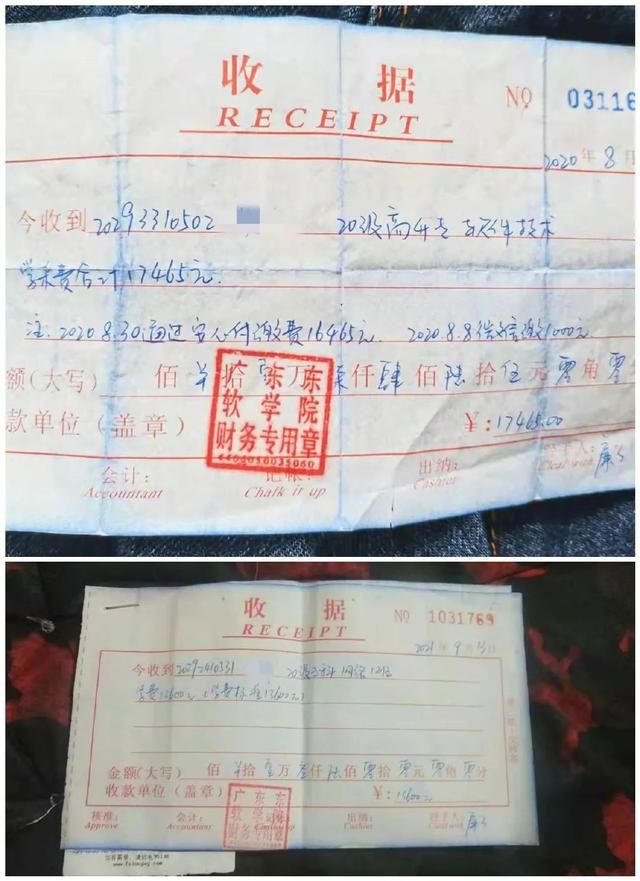 收 据
RECEIPT
№ 03116
2020年8月
今收到20293310502 20级高升专 软件技术
学杂费合计17465元.
注:2020.8.30通过安心付缴费16465元. 2020.8.8微信缴1000元.
额(大写) 佰 拾壹万柒仟肆佰陆拾伍元零角零
款单位(盖章) ¥:17465.00
广东东
软学院
财务专用章
会计: 记帐: 出纳: 经手人:
Accountant Chalk it up Cashier Cleal with
收 据
RECEIPT
№ 1031769
2021年9月
今收到2029 20级 网络
学费13600元(学费标准
金额(大写) 佰 拾壹万叁仟陆佰零拾零元零角零分
收款单位(盖章) ¥:13600元
广东东
软学院
财务专用章
核准: 会计: 出纳: 经手人:
Approve Accountant Cashier